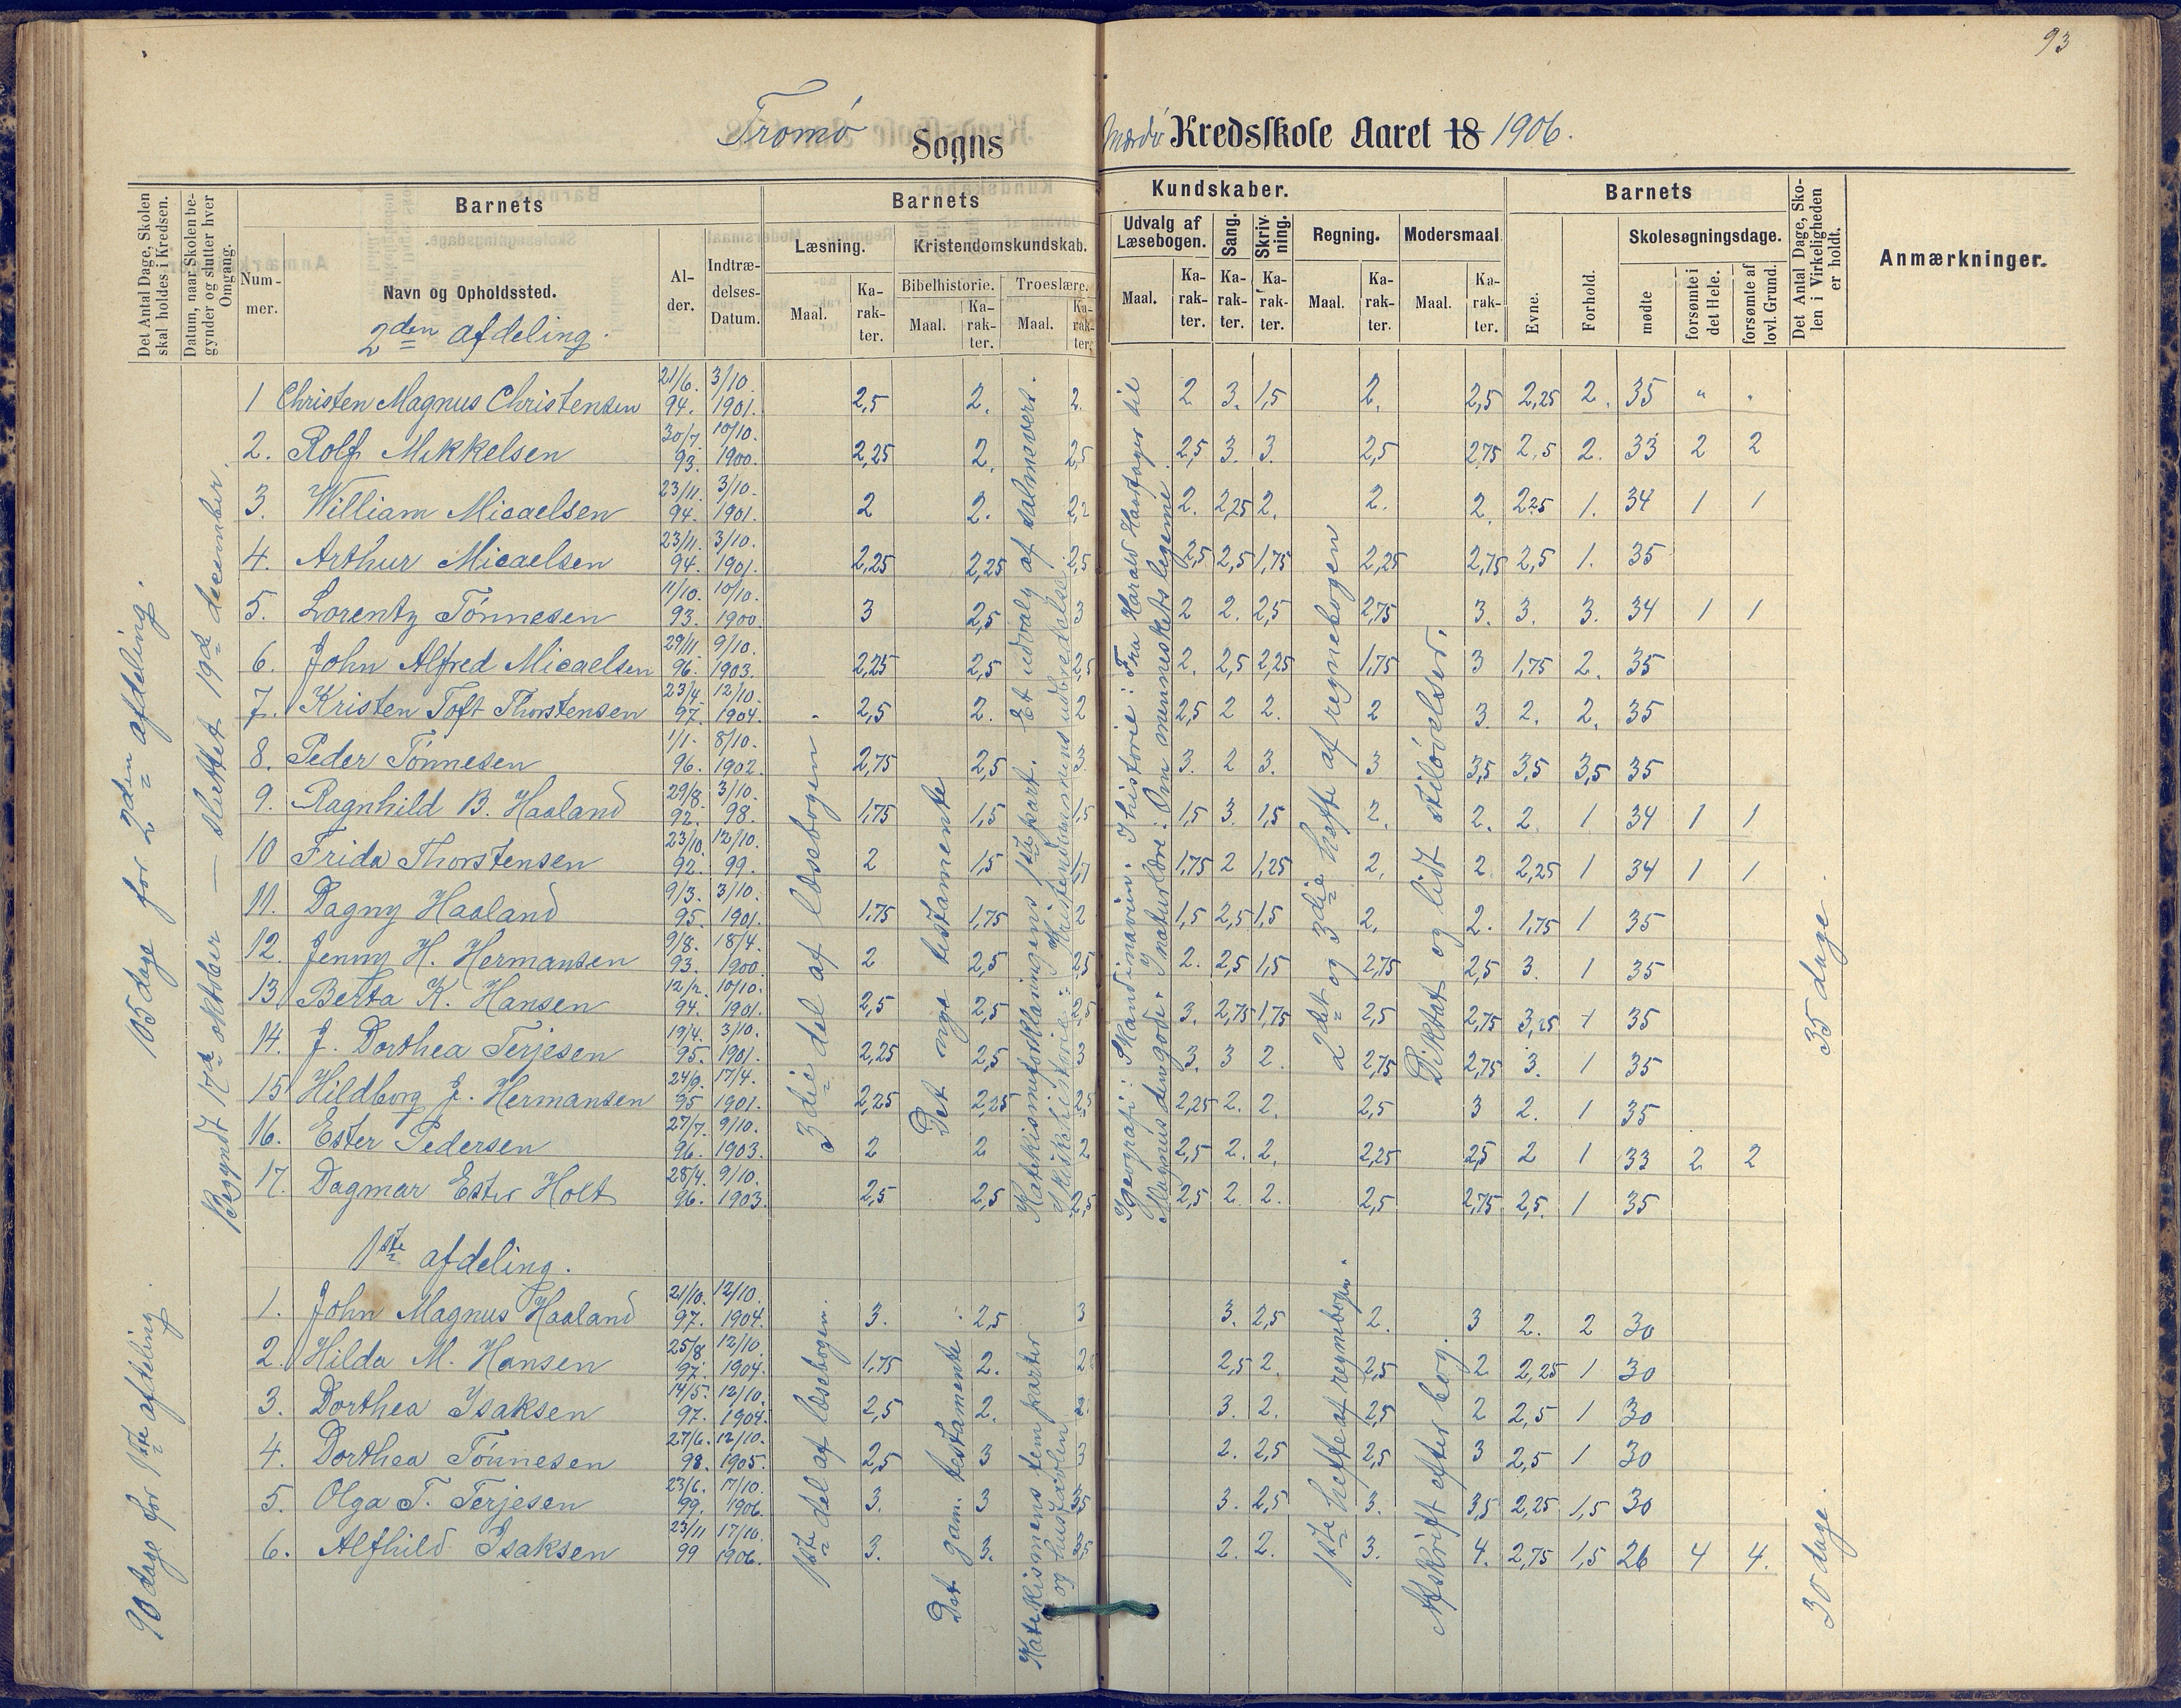 93
Tromø Sogns
Mærdø Kredsskole Aaret 18 1906.
Det Antal Dage, Skolen skal holdes i Kredsen.
Datum, naar Skolen begynder og slutter hver Omgang.
Barnets
Nummer.
Navn og Opholdssted.
Alder.
Indtrædelses-Datum.
Barnets
Læsning.
Kristendomskundskab.
Bibelhistorie.
Troeslære.
Maal.
Karakter.
Maal.
Karakter.
Maal.
Karakter.
Kundskaber.
Udvalg af Læsebogen.
Sang.
Skrivning.
Regning.
Modersmaal
Maal.
Karakter.
Karakter.
Karakter.
Maal.
Karakter.
Maal.
Karakter.
Barnets
Evne.
Forhold.
Skolesøgningsdage.
mødte
forsømte i det Hele.
forsømte af lovl. Grund.
Det Antal Dage, Skolen i Virkeligheden er holdt.
Anmærkninger.
2den afdeling.
105 dage for 2den afdeling.
Begyndt 17de oktober — sluttet 19de december.
3die del af læsebogen
Det nye testamente
Katekismeforklaringens 1ste part. Et udvalg af salmevers.
I kirkehistorie: Kristendommens udbredelse.
I geografi: Skandinavien. I historie: Fra Harald Haarfager til
Magnus den gode. I naturlære: Om menneskets legeme
2det og 3die hefte af regnebogen
Diktat og lidt stiløvelser.
35 dage.
1 Christen Magnus Christensen 21/6. 94. 3/10. 1901. 2,5 2. 2. 2 3. 1,5 2. 2,5 2,25 2. 35 " "
2. Rolf Mikkelsen 30/7. 93. 10/10. 1900. 2,25 2. 2,5 2,5 3. 3. 2,5 2,75 2,5 2. 33 2 2
3. William Micaelsen 23/11. 94. 3/10. 1901. 2 2. 2,2 2. 2,25 2. 2. 2. 2,25 1. 34 1 1
4. Arthur Micaelsen 23/11. 94. 3/10. 1901. 2,25 2,25 2,5 2,5 2,5 1,75 2,25 2,75 2,5 1. 35
5. Lorentz Tønnesen 11/10. 93. 10/10. 1900. 3 2,5 3 2 2. 2,5 2,75 3. 3. 3. 34 1 1
6. John Alfred Micaelsen 29/11 96. 9/10. 1903. 2,25 2,5 2,5 2. 2,5 2,25 1,75 3 1,75 2. 35
7. Kristen Toft Thorstensen 23/4 97. 12/10. 1904. 2,5 2. 2 2,5 2 2. 2 3. 2. 2. 35
8. Peder Tønnesen 1/1. 96. 8/10. 1902. 2,75 2,5 3. 3. 2 3. 3 3,5 3,5 3,5 35
9. Ragnhild B. Haaland 29/8. 92. 3/10. 98. 1,75 1,5 1,5 1,5 3. 1,5 2. 2. 2. 1 34 1 1
10 Frida Thorstensen 23/10 92. 12/10. 99. 2 1,5 1,7 1,75 2 1,25 2. 2 2,25 1 34 1 1
11. Dagny Haaland 9/3. 95. 3/10. 1901. 1,75 1,75 2 1,5 2,5 1,5 2. 2. 1,75 1 35
12. Jenny H. Hermansen 9/8. 93. 18/4. 1900. 2 2,5 2,5 2. 2,5 1,5 2,75 2,5 3. 1 35
13 Berta K. Hansen 12/2. 94. 10/10. 1901. 2,5 2,5 2,5 3. 2,75 1,75 2,5 2,75 3,25 1 35
14. J. Dorthea Terjesen 19/4. 95. 3/10. 1901. 2,25 2,5 3 3. 3 2. 2,75 2,75 3. 1 35
15 Hildborg J. Hermansen 24/9. 95 17/4. 1901. 2,25 2,25 2,5 2,25 2. 2. 2,5 3 2. 1 35
16. Ester Pedersen 27/7. 96. 9/10. 1903. 2 2 2 2,5 2. 2. 2,25 2,5 2 1 33 2 2
17. Dagmar Ester Holt 28/4. 96. 9/10. 1903. 2,5 2,5 2,5 2,5 2. 2. 2,5 2,75 2,5. 1 35
1ste afdeling.
90 dage for 1ste afdeling.
1ste del af læsebogen.
Det gam. testamente
Katekismens fem parter
og hustavlen
1ste hefte af regnebogen.
Afskrift efter bog.
30 dage.
1. John Magnus Haaland 21/10. 97. 12/10. 1904. 3. 2,5 3 3. 2,5 2. 3 2. 2 30
2. Hilda M. Hansen 25/8 97. 12/10. 1904. 1,75 2. 2,5 2. 2,5 2 2,25 1 30
3. Dorthea Isaksen 14/5. 97. 12/10. 1904. 2,5 2. 3. 2. 2,5 2 2,5 1 30
4. Dorthea Tønnesen 27/6. 98. 12/10. 1905. 2,5 3 3 2. 2,5 2,5 3 2,5 1 30
5. Olga T. Terjesen 23/6. 99. 17/10. 1906. 3. 3 3,5 3. 2,5 3. 3,5 2,25 1,5 30
6. Alfhild Isaksen 23/11 99 17/10. 1906. 3. 3. 3,5 2. 2. 3. 4. 2,75 1,5 26 4 4.